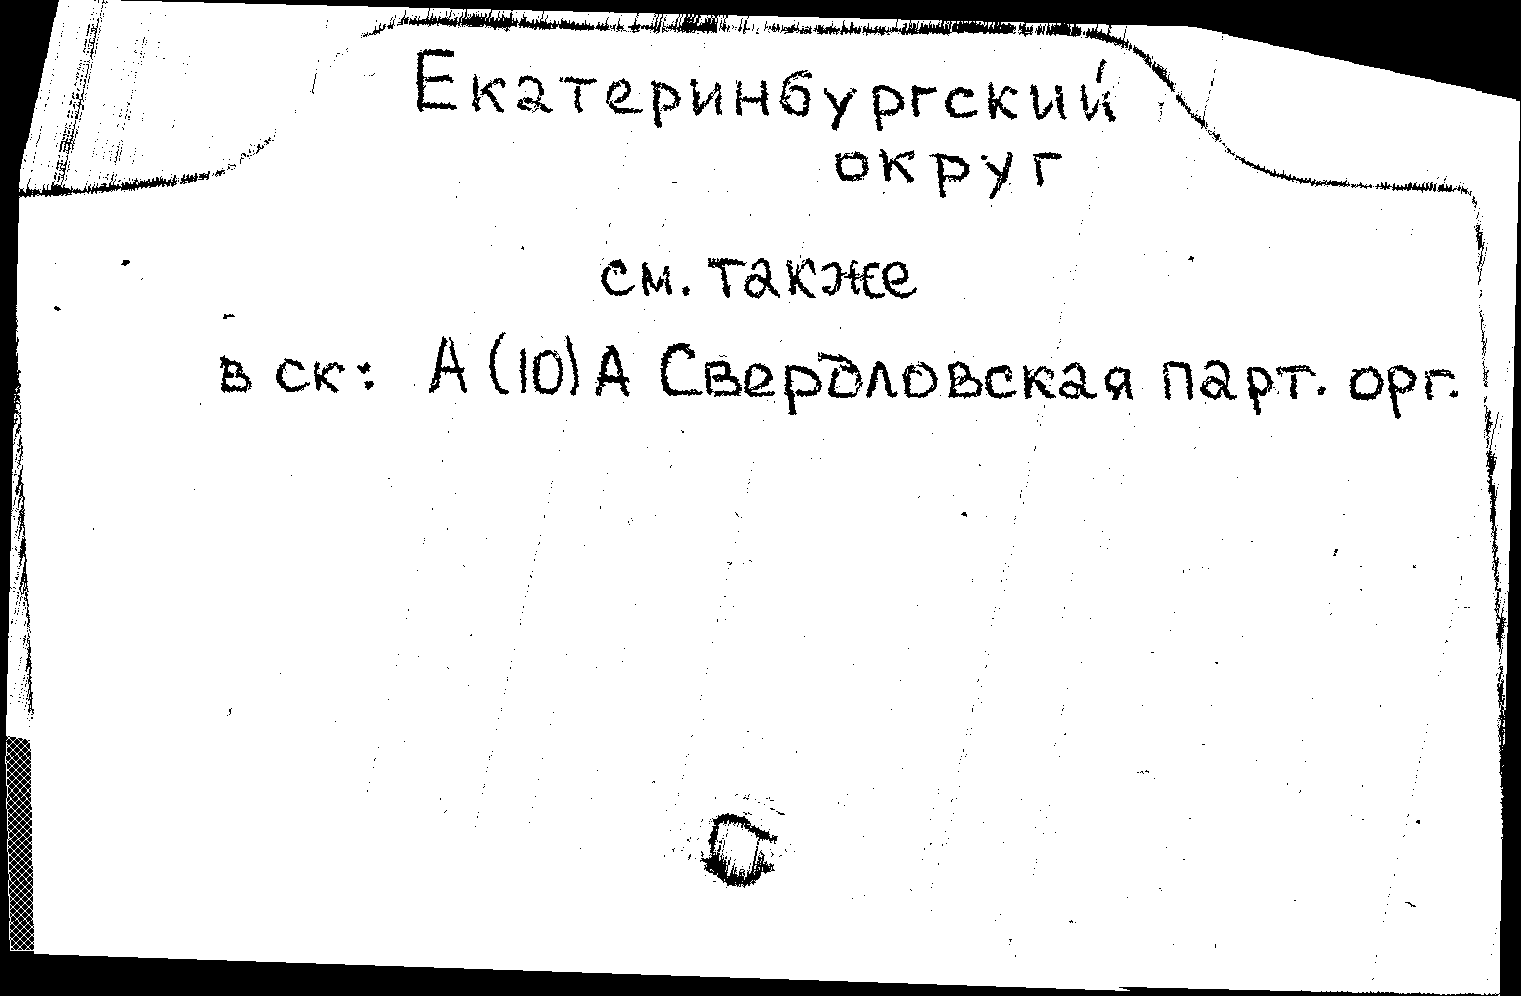 Екатеринбургский
округ
см. также
в ск: А(10)А Свердловская парт. орг.